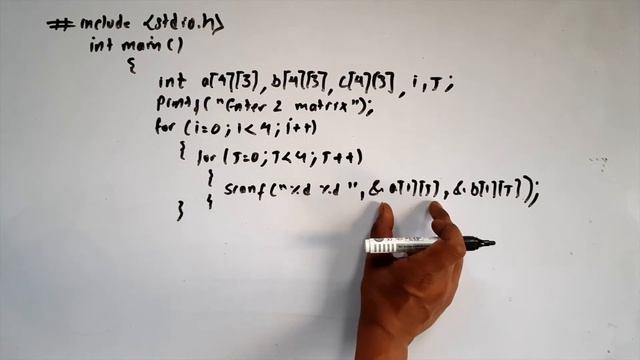 # include <stdio.h>
int main()
{
int a[4][3], b[4][3], c[4][3], i, J;
Printf("Enter 2 matrix");
for (i=0; i<4; i++)
{ for (J=0; J<4; J++)
{ scanf("%d %d", &a[i][J], &b[i][J]);
} {